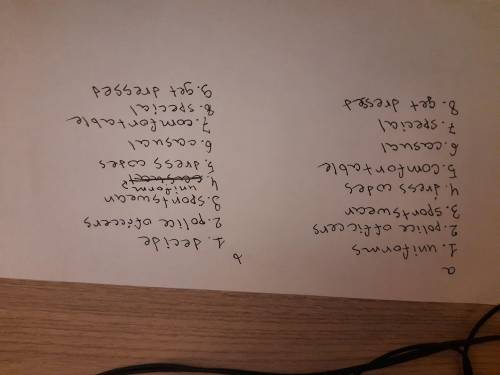 a
1. uniforms
2. police officers
3. sportswear
4. dress codes
5. comfortable
6. casual
7. special
8. get dressed
b
1. decide
2. police officers
3. sportswear
4. uniforms
5. dress codes
6. casual
7. comfortable
8. special
9. get dresses